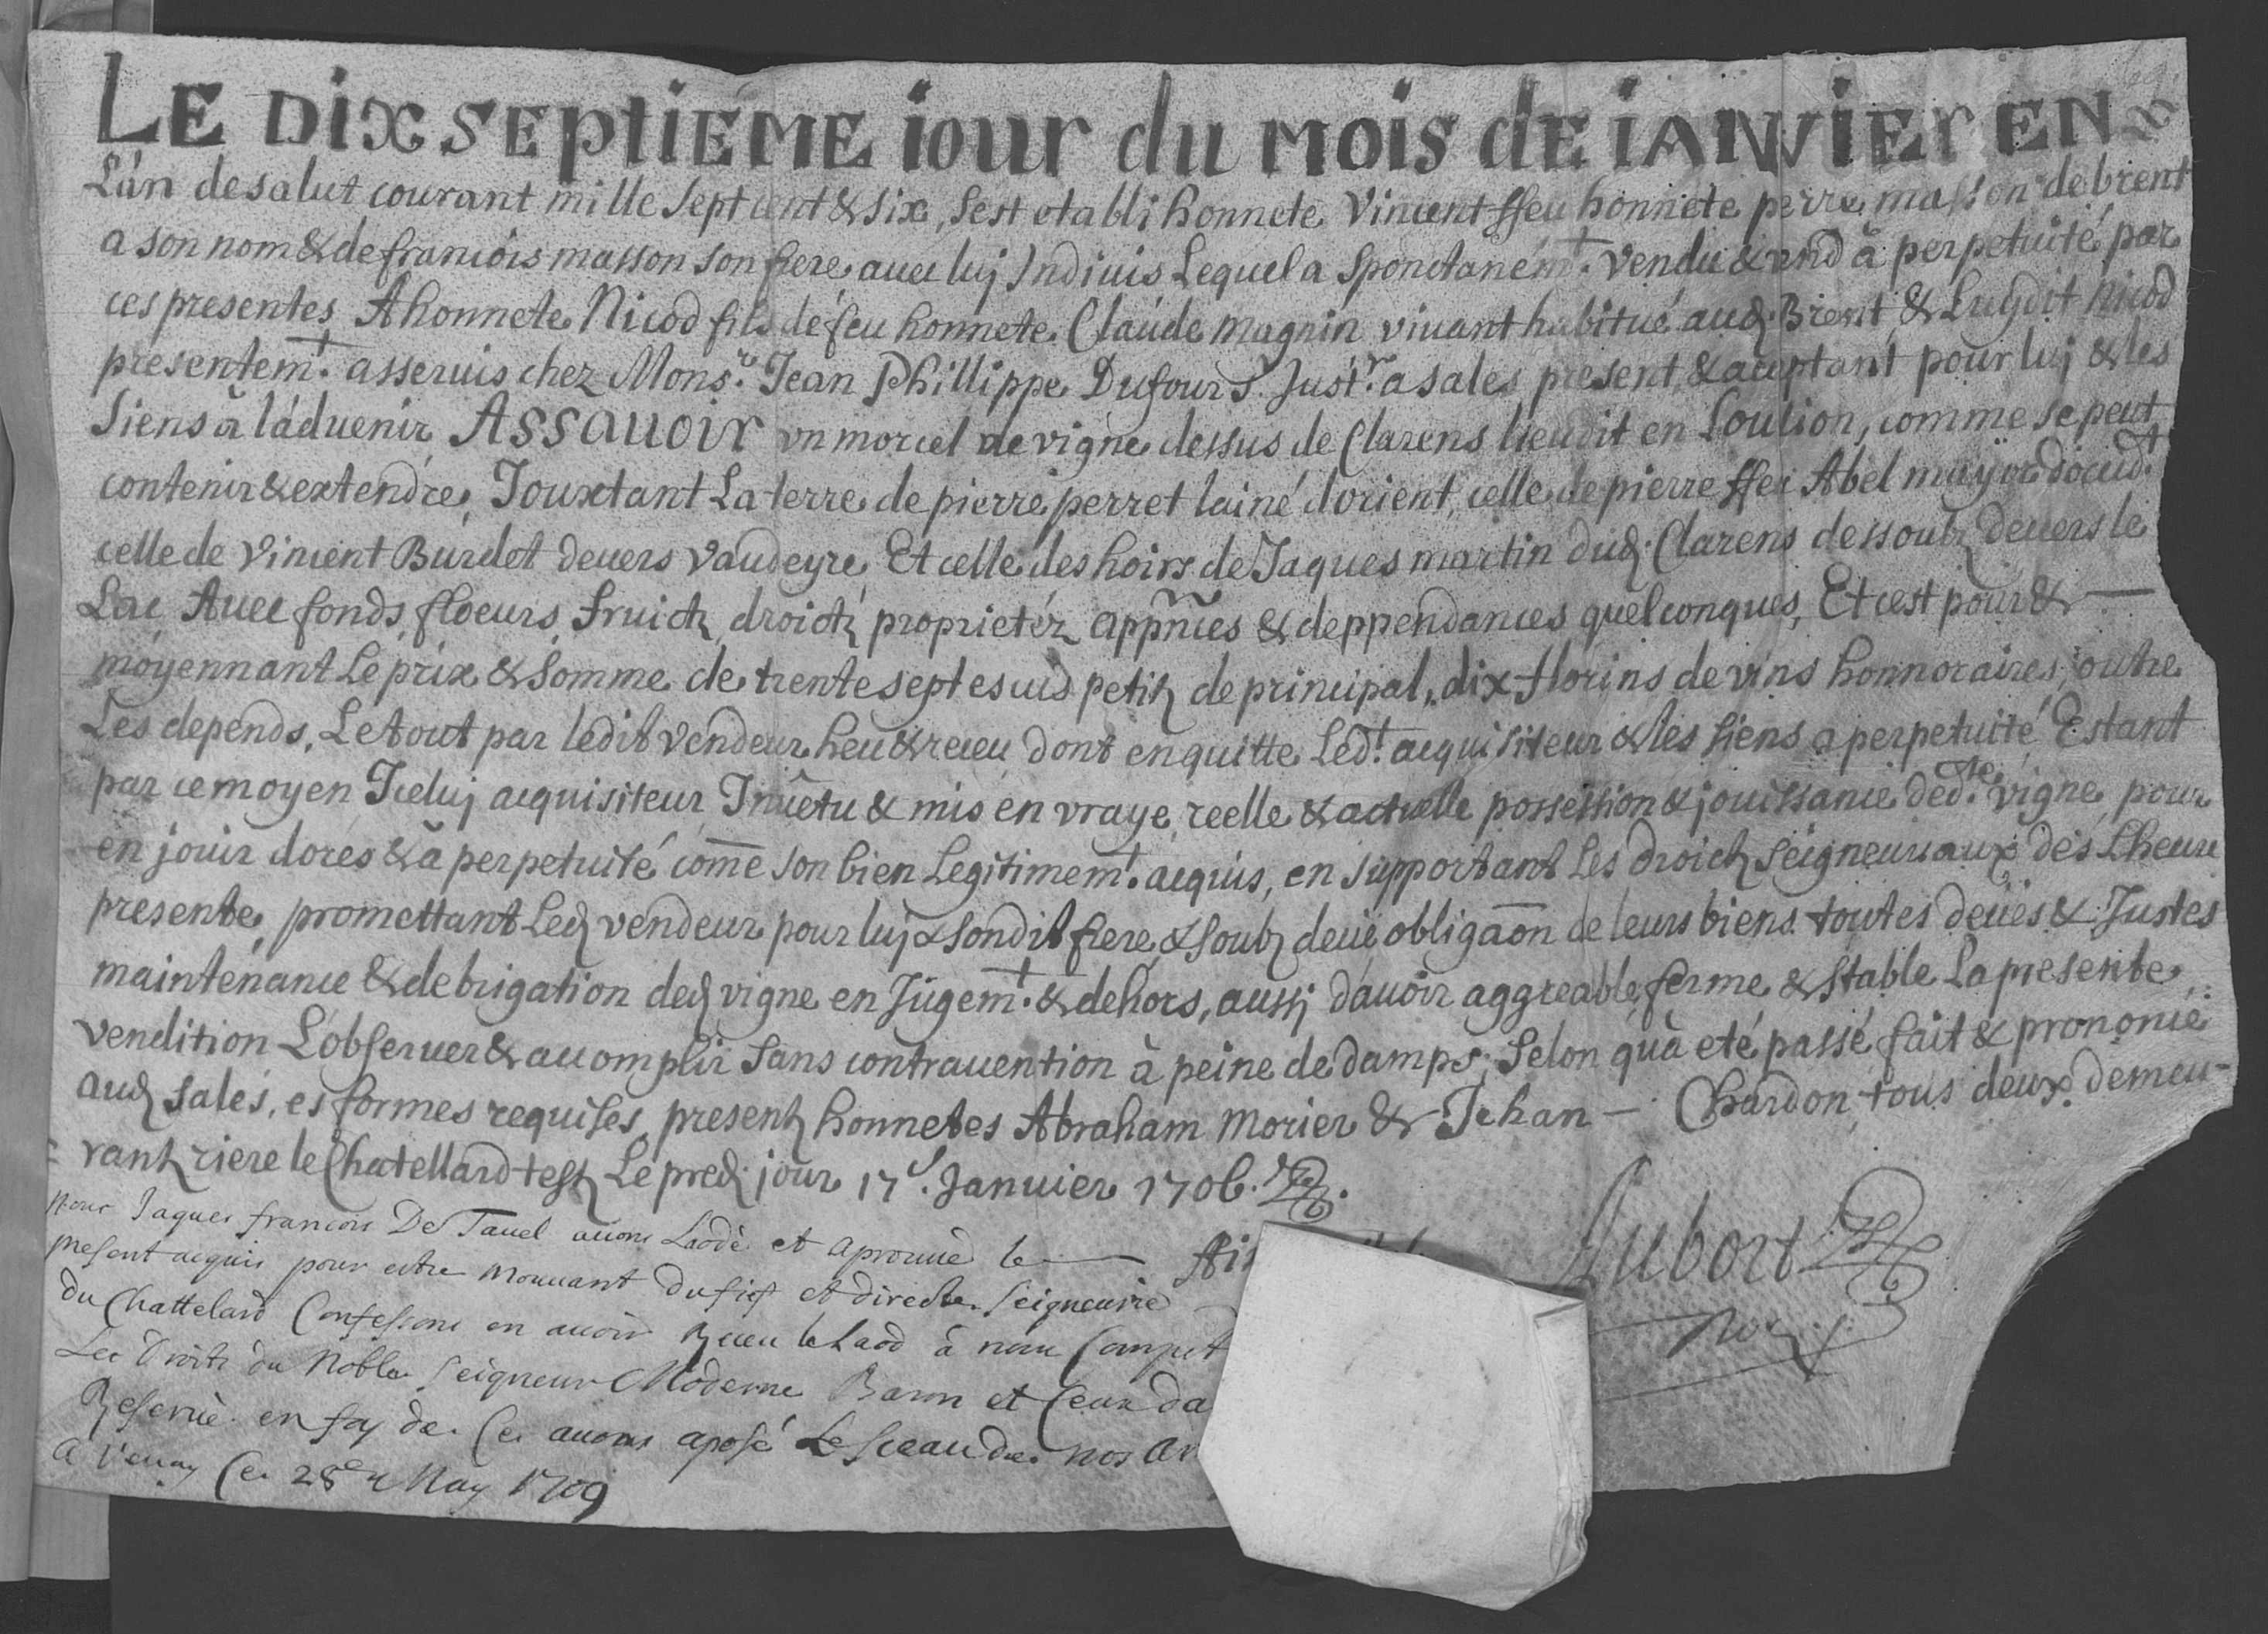 LE DiX SEptiÉME iour du MOiS dE iANViEr EN
L'an de salut courant mille sept cent & six, sest etabli honnete Vincent ffeu honnete perre masson de brent
a son nom & de francois masson son frere avec luj Indivis Lequel a Sponctaném.t vendu & vend à perpetuité par
ces presentes A honnete Nicod fils dé feu honnete Claude magnin vivant habitué aud. Brent & Luydit Nicod
presentem.t asservis chez Mons.r Jean Phillippe Dufour S. Just.r a sales present & aceptant pour luj & les
siens à l'advenir ASSAUOir vn morcel de vigne dessus de Clarens lieudit en Loulion, comme se peut
contenir & extendre, Jouxtant La terre de pierre perret lainé dorient, celle de pierre ffeu Abel mayor docid.t
celle de Vincent Burdet devers vaudeyre Et celle des hoirs de Jaques martin dud. Clarens dessoubz devers le
Lac Avec fonds, floeurs, fruictz, droictz proprietéz appñces & deppendances quelconques, Et cest pour & —
moyennant Le prix & somme de trente sept escus petitz de principal, dix florins de vins honnoraires, outre
Les depends, Le tout par ledit vendeur heu & receu dont en quitte Led.t acquisiteur & les siens a perpetuité Estant
par ce moyen Iceluj acquisiteur Invêtu & mis en vraye, reelle & actuelle possession & jouissance ded.te vigne, pour
en jouir dores & à perpetuité come son bien Legitimem.t acquis, en supportant Les droictz seigneuriaux dés Lheure
presente, promettant Led. vendeur pour luj & sondit frere, & soubz deüe obligaon de leurs biens toutes deües & Justes
maintenance & debrigation ded. vigne en Jugem.t & dehors, aussj davoir aggreable, ferme & stable La presente
vendition L'observer & accomplir sans contravention à peine de damps; Selon qu'a eté passé fait & prononcé
aud. sales, es formes requises, presentz honnetes Abraham Morier & Jehan — Chardon tous deux demeu-
rantz riere le Chatellard testz Le pred. jour 17.e Janvier 1706.
Nous Jaques francois De Tavel avons Laodé et aprouvé le —
present acquis pour estre mouvant du fief et directe Seigneurie
du Chattelard Confessons en avoir Receu le Laod à nous Compet
Les Droits du Noble Seigneur Moderne Baron et Ceux da
Reservè. en foy de Ce avons aposé Le Sceau de nos ar
A Vevay Ce 28e May 1709
Dubort
Not.